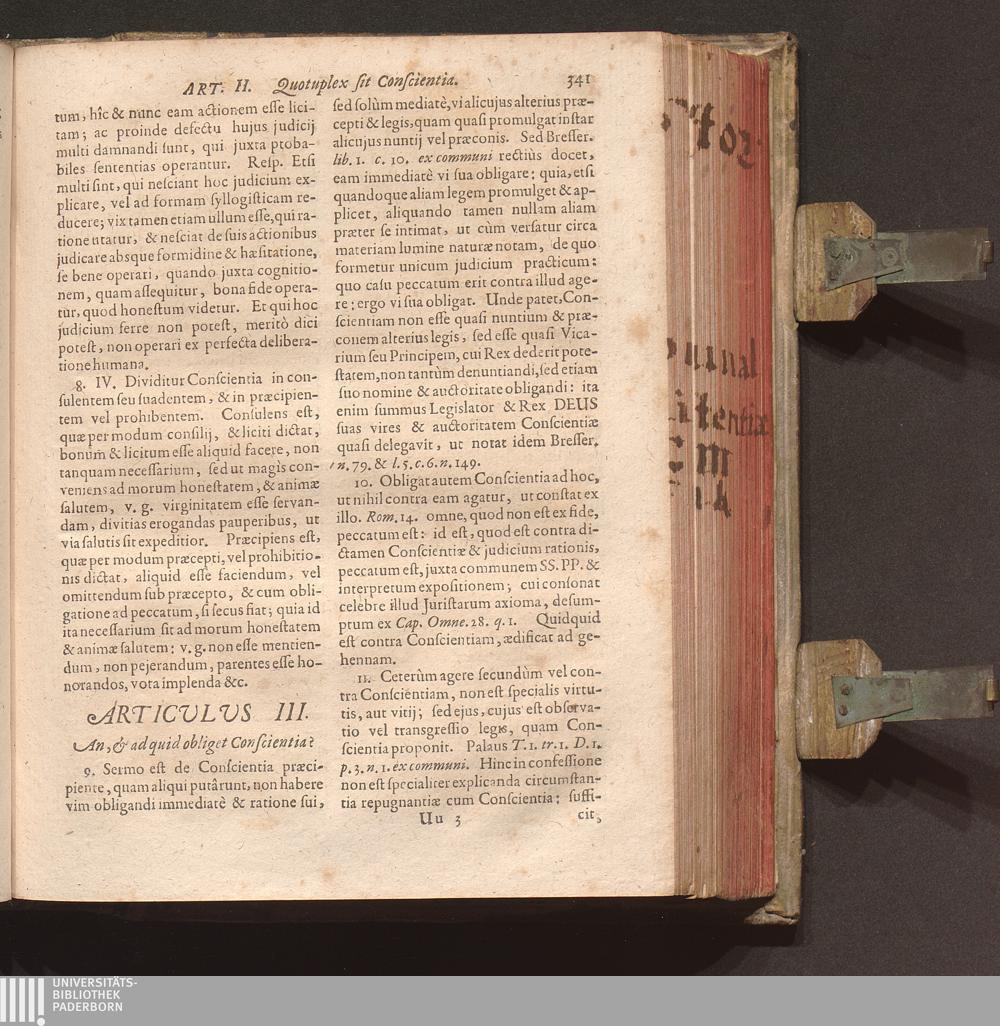 ART. II. Quotuplex ſit Conſcientia. 341
tum, hîc & nunc eam actionem eſſe lici-
tam; ac proinde defectu hujus judicij
multi damnandi ſunt, qui juxta proba-
biles ſententias operantur. Reſp. Etſi
multi ſint, qui neſciant hoc judicium ex-
plicare, vel ad formam ſyllogiſticam re-
ducere; vix tamen etiam ullum eſſe, qui ra-
tione utatur, & neſciat de ſuis actionibus
judicare absque formidine & hæſitatione,
ſe bene operari, quando juxta cognitio-
nem, quam aſſequitur, bona fide opera-
tur, quod honeſtum videtur. Et qui hoc
judicium ferre non poteſt, meritò dici
poteſt, non operari ex perfecta delibera-
tione humana.
8. IV. Dividitur Conſcientia in con-
ſulentem ſeu ſuadentem, & in præcipien-
tem vel prohibentem. Conſulens eſt,
quæ per modum conſilij, & liciti dictat,
bonum & licitum eſſe aliquid facere, non
tanquam neceſſarium, ſed ut magìs con-
veniens ad morum honeſtatem, & animæ
ſalutem, v. g. virginitatem eſſe ſervan-
dam, divitias erogandas pauperibus, ut
via ſalutis ſit expeditior. Præcipiens eſt,
quæ per modum præcepti, vel prohibitio-
nis dictat, aliquid eſſe faciendum, vel
omittendum ſub præcepto, & cum obli-
gatione ad peccatum, ſi ſecus fiat; quia id
ita neceſſarium ſit ad morum honeſtatem
& animæ ſalutem: v. g. non eſſe mentien-
dum, non pejerandum, parentes eſſe ho-
norandos, vota implenda &c.
ARTICULUS III.
An, & ad quid obliget Conſcientia?
9. Sermo eſt de Conſcientia præci-
piente, quam aliqui putârunt, non habere
vim obligandi immediatè & ratione ſui,
ſed ſolùm mediatè, vi alicujus alterius præ-
cepti & legis, quam quaſi promulgat inſtar
alicujus nuntij vel præconis. Sed Breſſer.
lib. 1. c. 10. ex communi rectiùs docet,
eam immediatè vi ſua obligare: quia, etſi
quandoque aliam legem promulget & ap-
plicet, aliquando tamen nullam aliam
præter ſe intimat, ut cùm verſatur circa
materiam lumine naturæ notam, de quo
formetur unicum judicium practicum:
quo caſu peccatum erit contra illud age-
re: ergo vi ſua obligat. Unde patet, Con-
ſcientiam non eſſe quaſi nuntium & præ-
conem alterius legis, ſed eſſe quaſi Vica-
rium ſeu Principem, cui Rex dederit pote-
ſtatem, non tantùm denuntiandi, ſed etiam
ſuo nomine & auctoritate obligandi: ita
enim ſummus Legislator & Rex DEUS
ſuas vires & auctoritatem Conſcientiæ
quaſi delegavit, ut notat idem Breſſer.
n. 79. & l. 5. c. 6. n. 149.
10. Obligat autem Conſcientia ad hoc,
ut nihil contra eam agatur, ut conſtat ex
illo. Rom. 14. omne, quod non eſt ex fide,
peccatum eſt: id eſt, quod eſt contra di-
ctamen Conſcientiæ & judicium rationis,
peccatum eſt, juxta communem SS. PP. &
interpretum expoſitionem; cui conſonat
celebre illud Juriſtarum axioma, deſum-
ptum ex Cap. Omne. 28. q. 1. Quidquid
eſt contra Conſcientiam, ædificat ad ge-
hennam.
11. Ceterùm agere ſecundùm vel con-
tra Conſcientiam, non eſt ſpecialis virtu-
tis, aut vitij; ſed ejus, cujus eſt obſerva-
tio vel transgreſſio legis, quam Con-
ſcientia proponit. Palaus T. 1. tr. 1. D. 1.
p. 3. n. 1. ex communi. Hinc in confeſſione
non eſt ſpecialiter explicanda circumſtan-
tia repugnantiæ cum Conſcientia: ſuffi-
Uu 3 cit,
UNIVERSITÄTS-
BIBLIOTHEK
PADERBORN